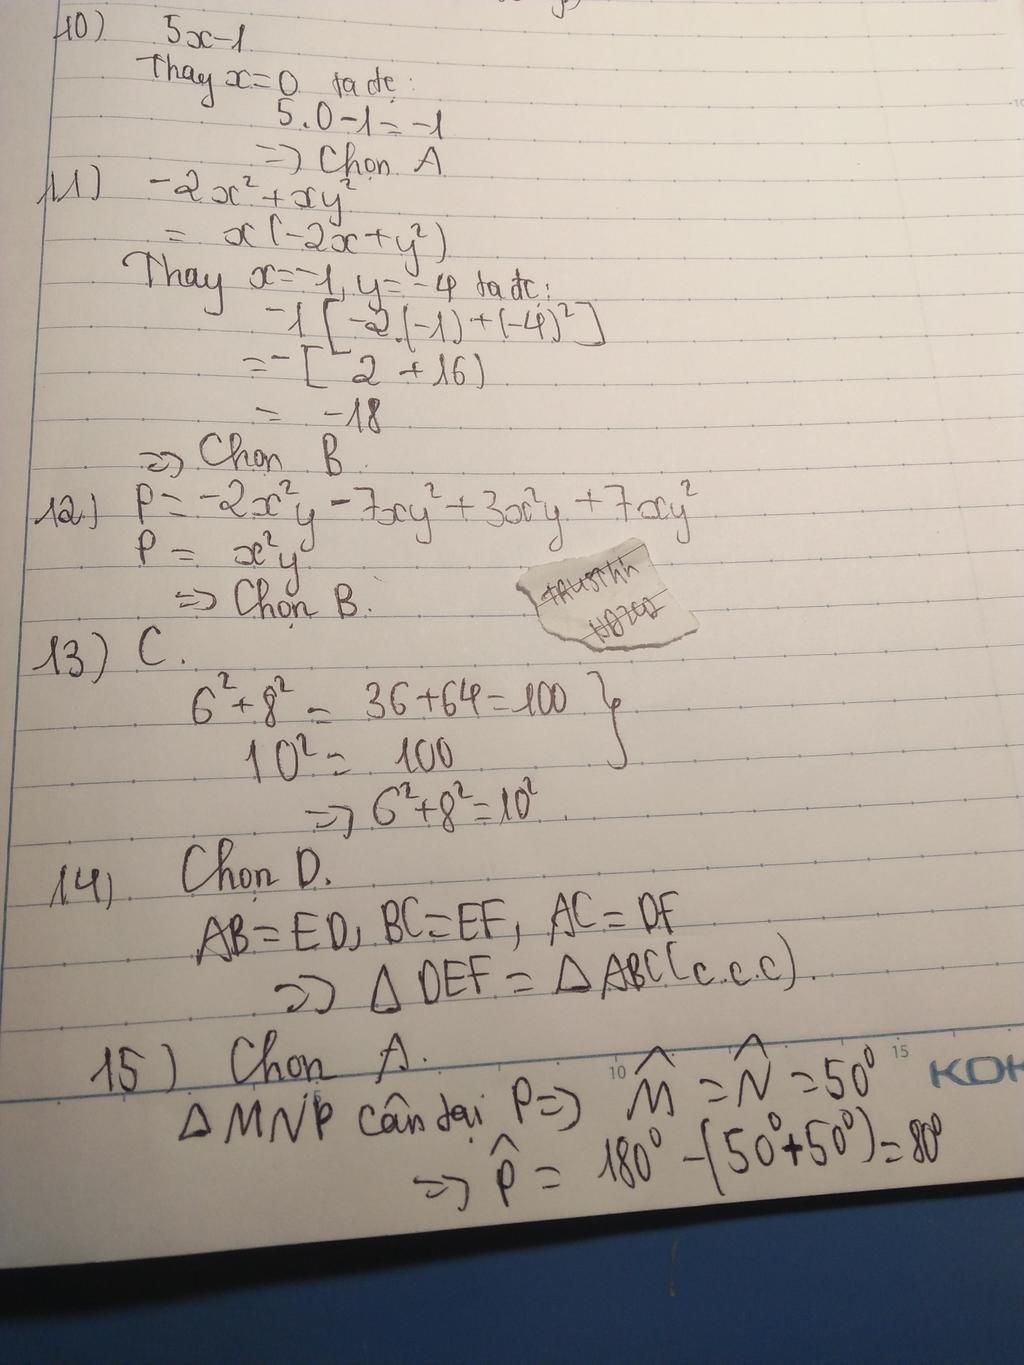 10) 5x-1
Thay x=0 ta đc:
5.0-1=-1
=> Chọn A
11) -2x²+xy²
= x(-2x+y²)
Thay x=-1, y=-4 ta đc:
-1[-2.(-1)+(-4)²]
=-[2+16)
= -18
=> Chọn B
12) P=-2x²y-7xy²+3x²y+7xy²
P= x²y
=> Chọn B.
13) C.
6²+8²= 36+64=100 }
10²= 100
=> 6²+8²=10²
14) Chọn D.
AB=ED, BC=EF, AC=DF
=> Δ DEF = Δ ABC(c.c.c).
15) Chọn A.
10
15
KOK
Δ MNP cân tại P=> M̂ = N̂ = 50⁰
=> P̂ = 180⁰-(50⁰+50⁰)=80⁰